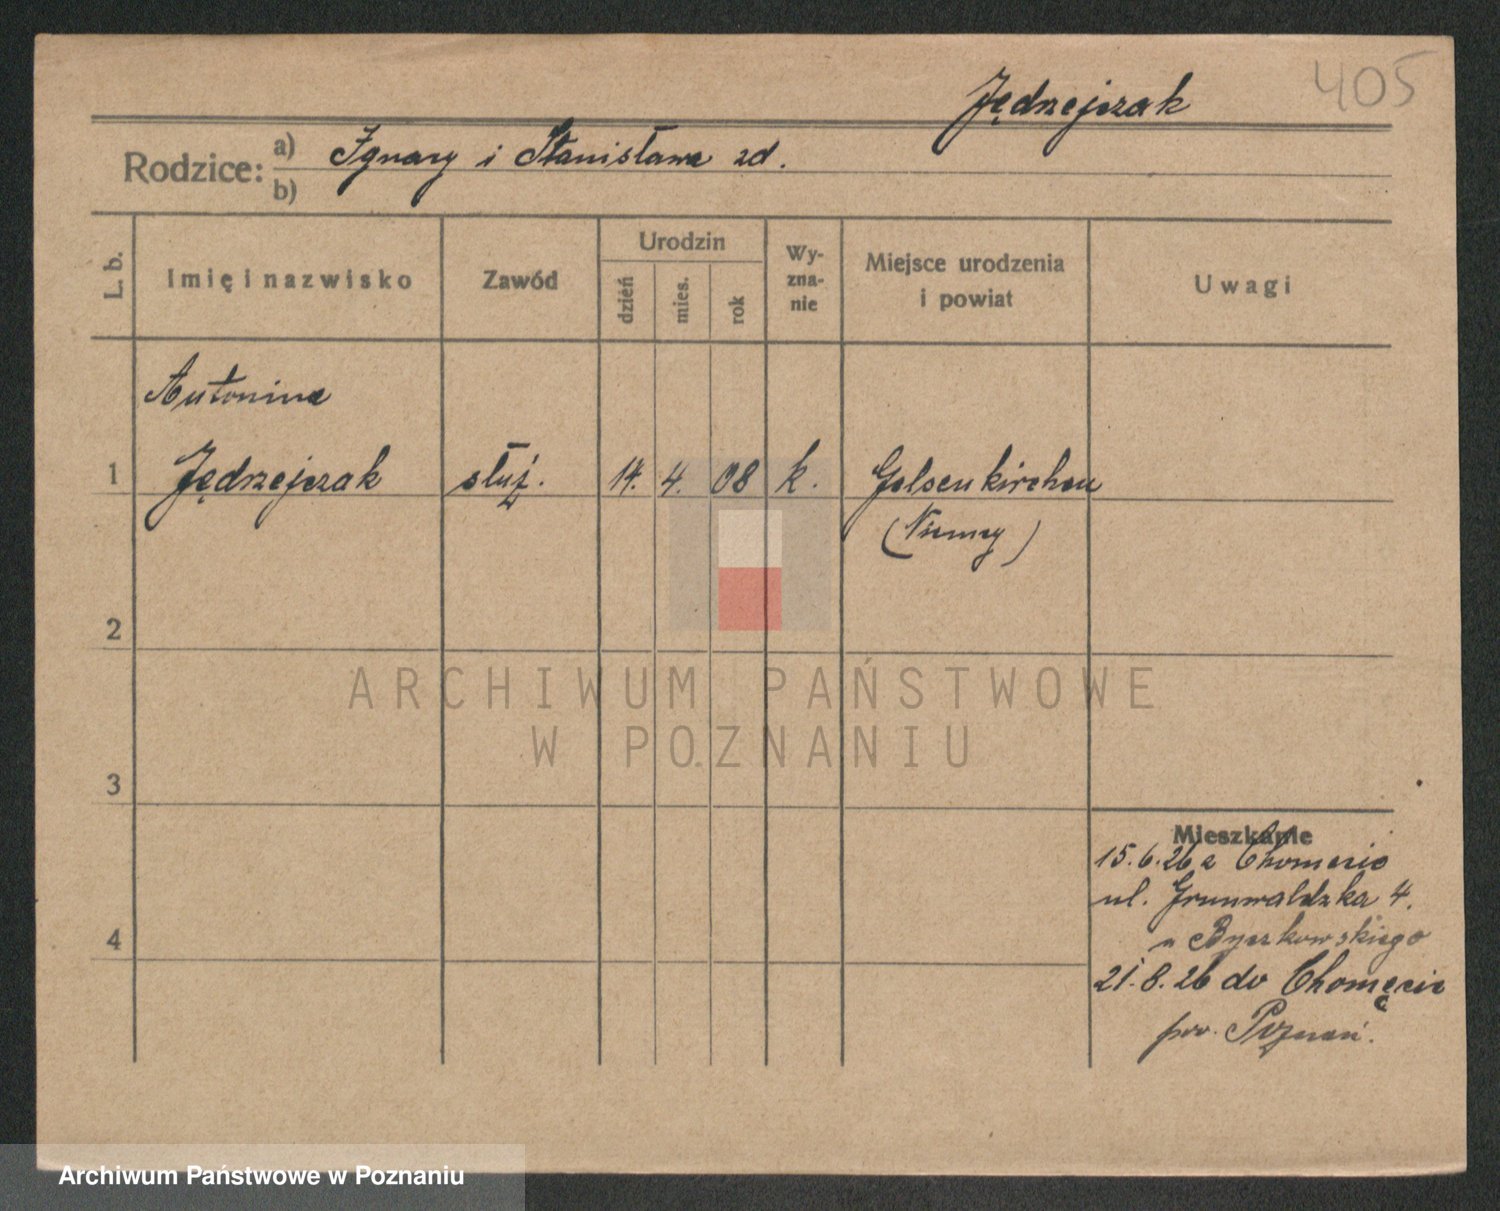 405
Jędrzejczak
Rodzice: a) Ignacy i Stanisława zd.
b)
L. b.
Imię i nazwisko
Zawód
Urodzin
dzień
mies.
rok
Wy-
zna-
nie
Miejsce urodzenia
i powiat
Uwagi
Antonina
1 Jędrzejczak służ. 14. 4. 08 k. Gelsenkirchen
(Niemcy)
2
3
4
Mieszkanie
15.6.26 z Chomęcic
ul. Grunwaldzka 4.
u Byczkowskiego
21.8.26 do Chomęcic
pow. Poznań.
ARCHIWUM PAŃSTWOWE
W POZNANIU
Archiwum Państwowe w Poznaniu